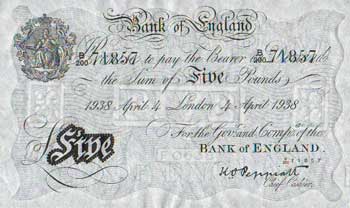 Bank of England
B/200 71857 B/200 71857
to pay the Bearer on Demand
the Sum of Five Pounds
1938 April 4 London 4 April 1938
For the Gov.r and Comp.a of the
BANK OF ENGLAND.
Five
K O Peppiatt
Chief Cashier